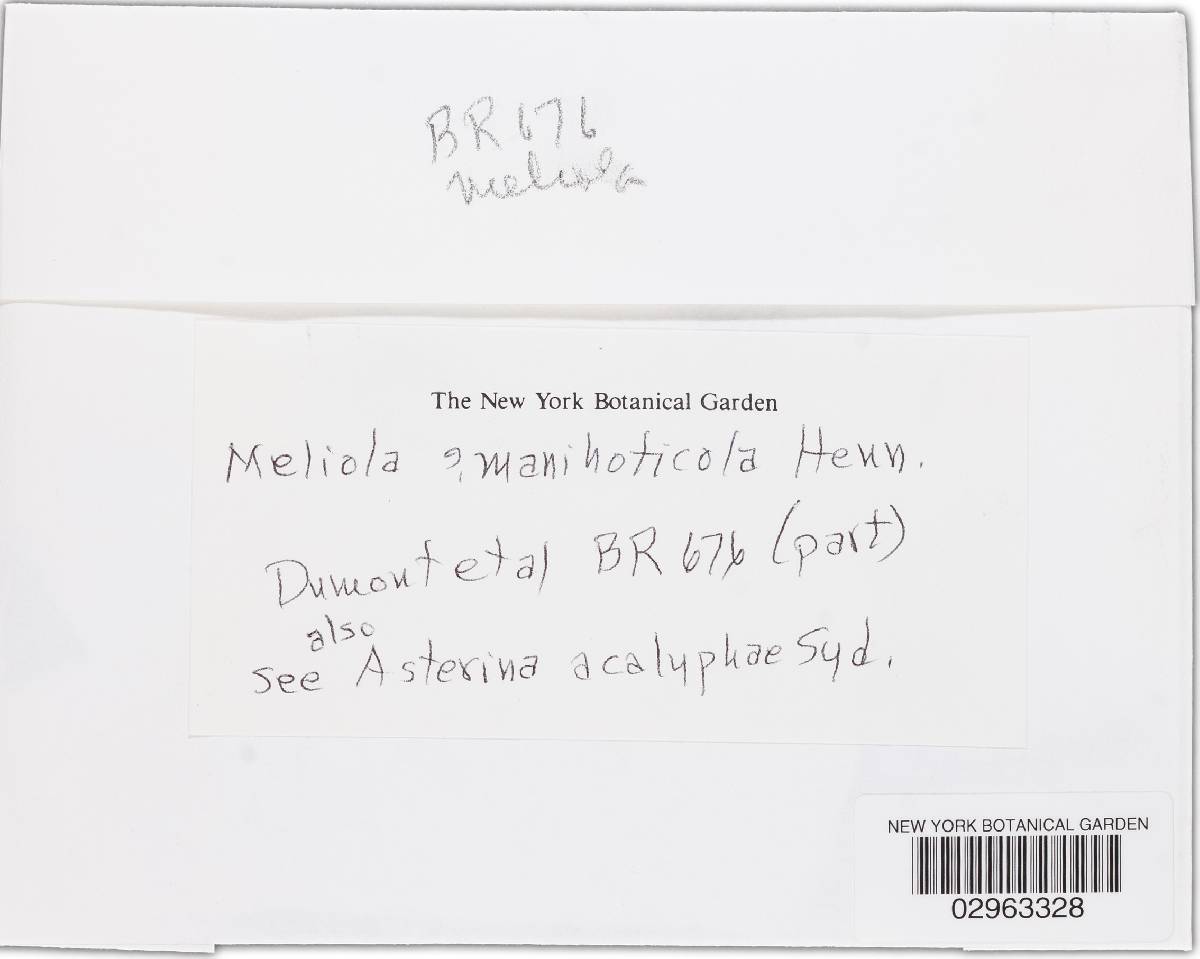 BR 676
meliola
The New York Botanical Garden
Meliola ? manihoticola Henn.
Dumont et al BR 676 (part)
also
see Asterina acalyphae Syd.
NEW YORK BOTANICAL GARDEN
02963328